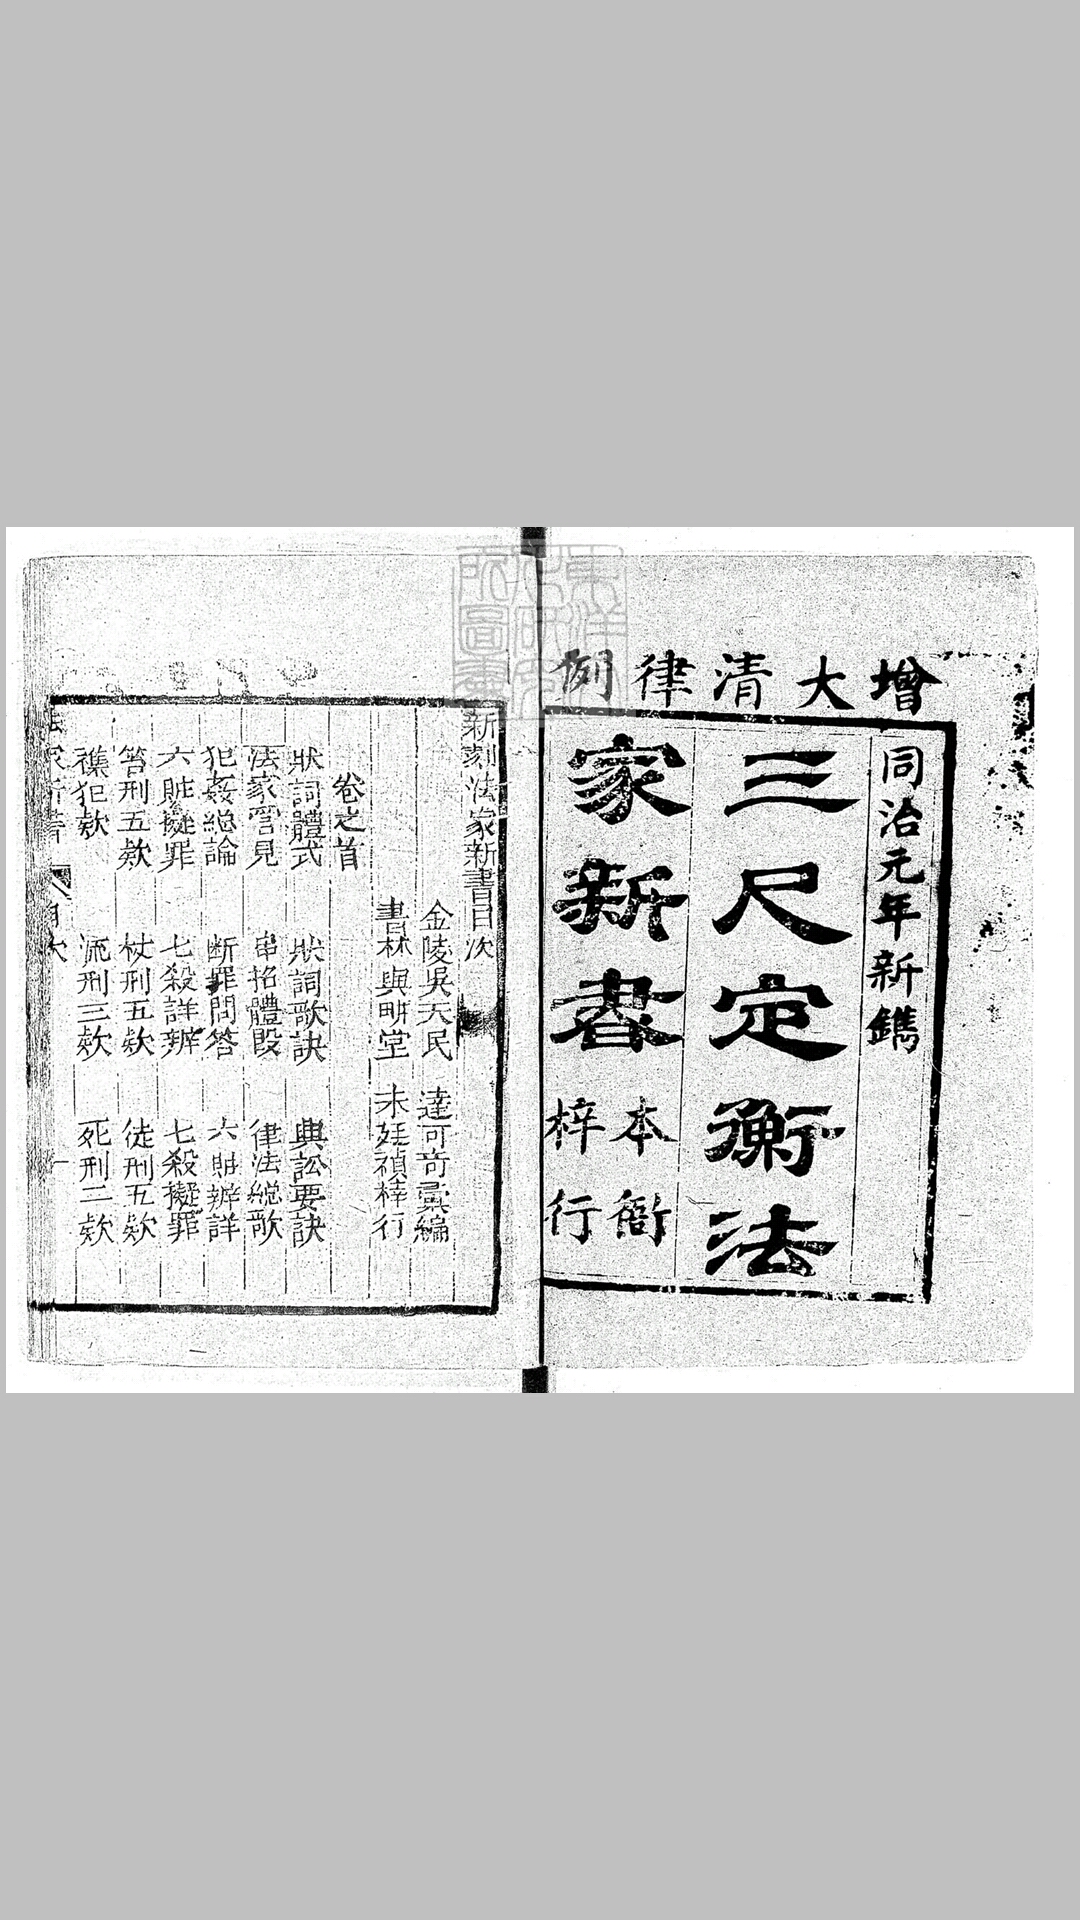 增大清律例
同治元年新鐫
三尺定衡法
家新書
本衙
梓行
新刻法家新書目次
金陵吳天民 達可奇彙編
書林與畊堂 朱廷禎梓行
卷之首
狀詞體式 狀詞歌訣 興訟要訣
法家管見 串招體段 律法總歌
犯姦總論 断罪問答 六賍辨詳
六賍擬罪 七殺詳辨 七殺擬罪
笞刑五欵 杖刑五欵 徒刑五欵
襍犯欵 流刑三欵 死刑二欵
目次
一